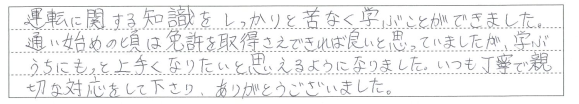 運転に関する知識をしっかりと苦なく学ぶことができました。
通い始めの頃は免許を取得さえできれば良いと思っていましたが、学ぶ
うちにもっと上手くなりたいと思えるようになりました。いつも丁寧で親
切な対応をして下さり、ありがとうございました。